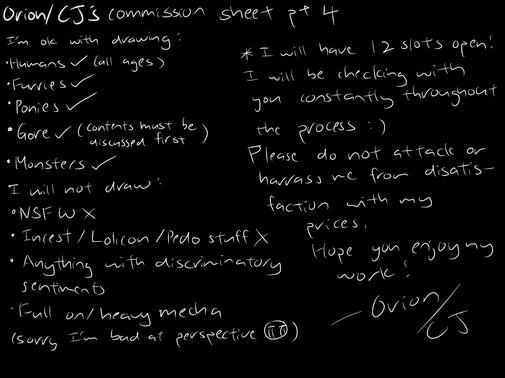 Orion/CJ's commission sheet pt 4
I'm ok with drawing:
• Humans ✓ (all ages)
• Furries ✓
• Ponies ✓
• Gore ✓ (contents must be
discussed first)
• Monsters ✓
I will not draw:
• NSFW X
• Incest/Lolicon/Pedo stuff X
• Anything with discriminatory
sentiments
• Full on/heavy mecha
(sorry I'm bad at perspective
* I will have 12 slots open!
I will be checking with
you constantly throughout
the process :)
Please do not attack or
harrass me from disatis-
faction with my
prices.
Hope you enjoy my
work!
— Orion/
CJ